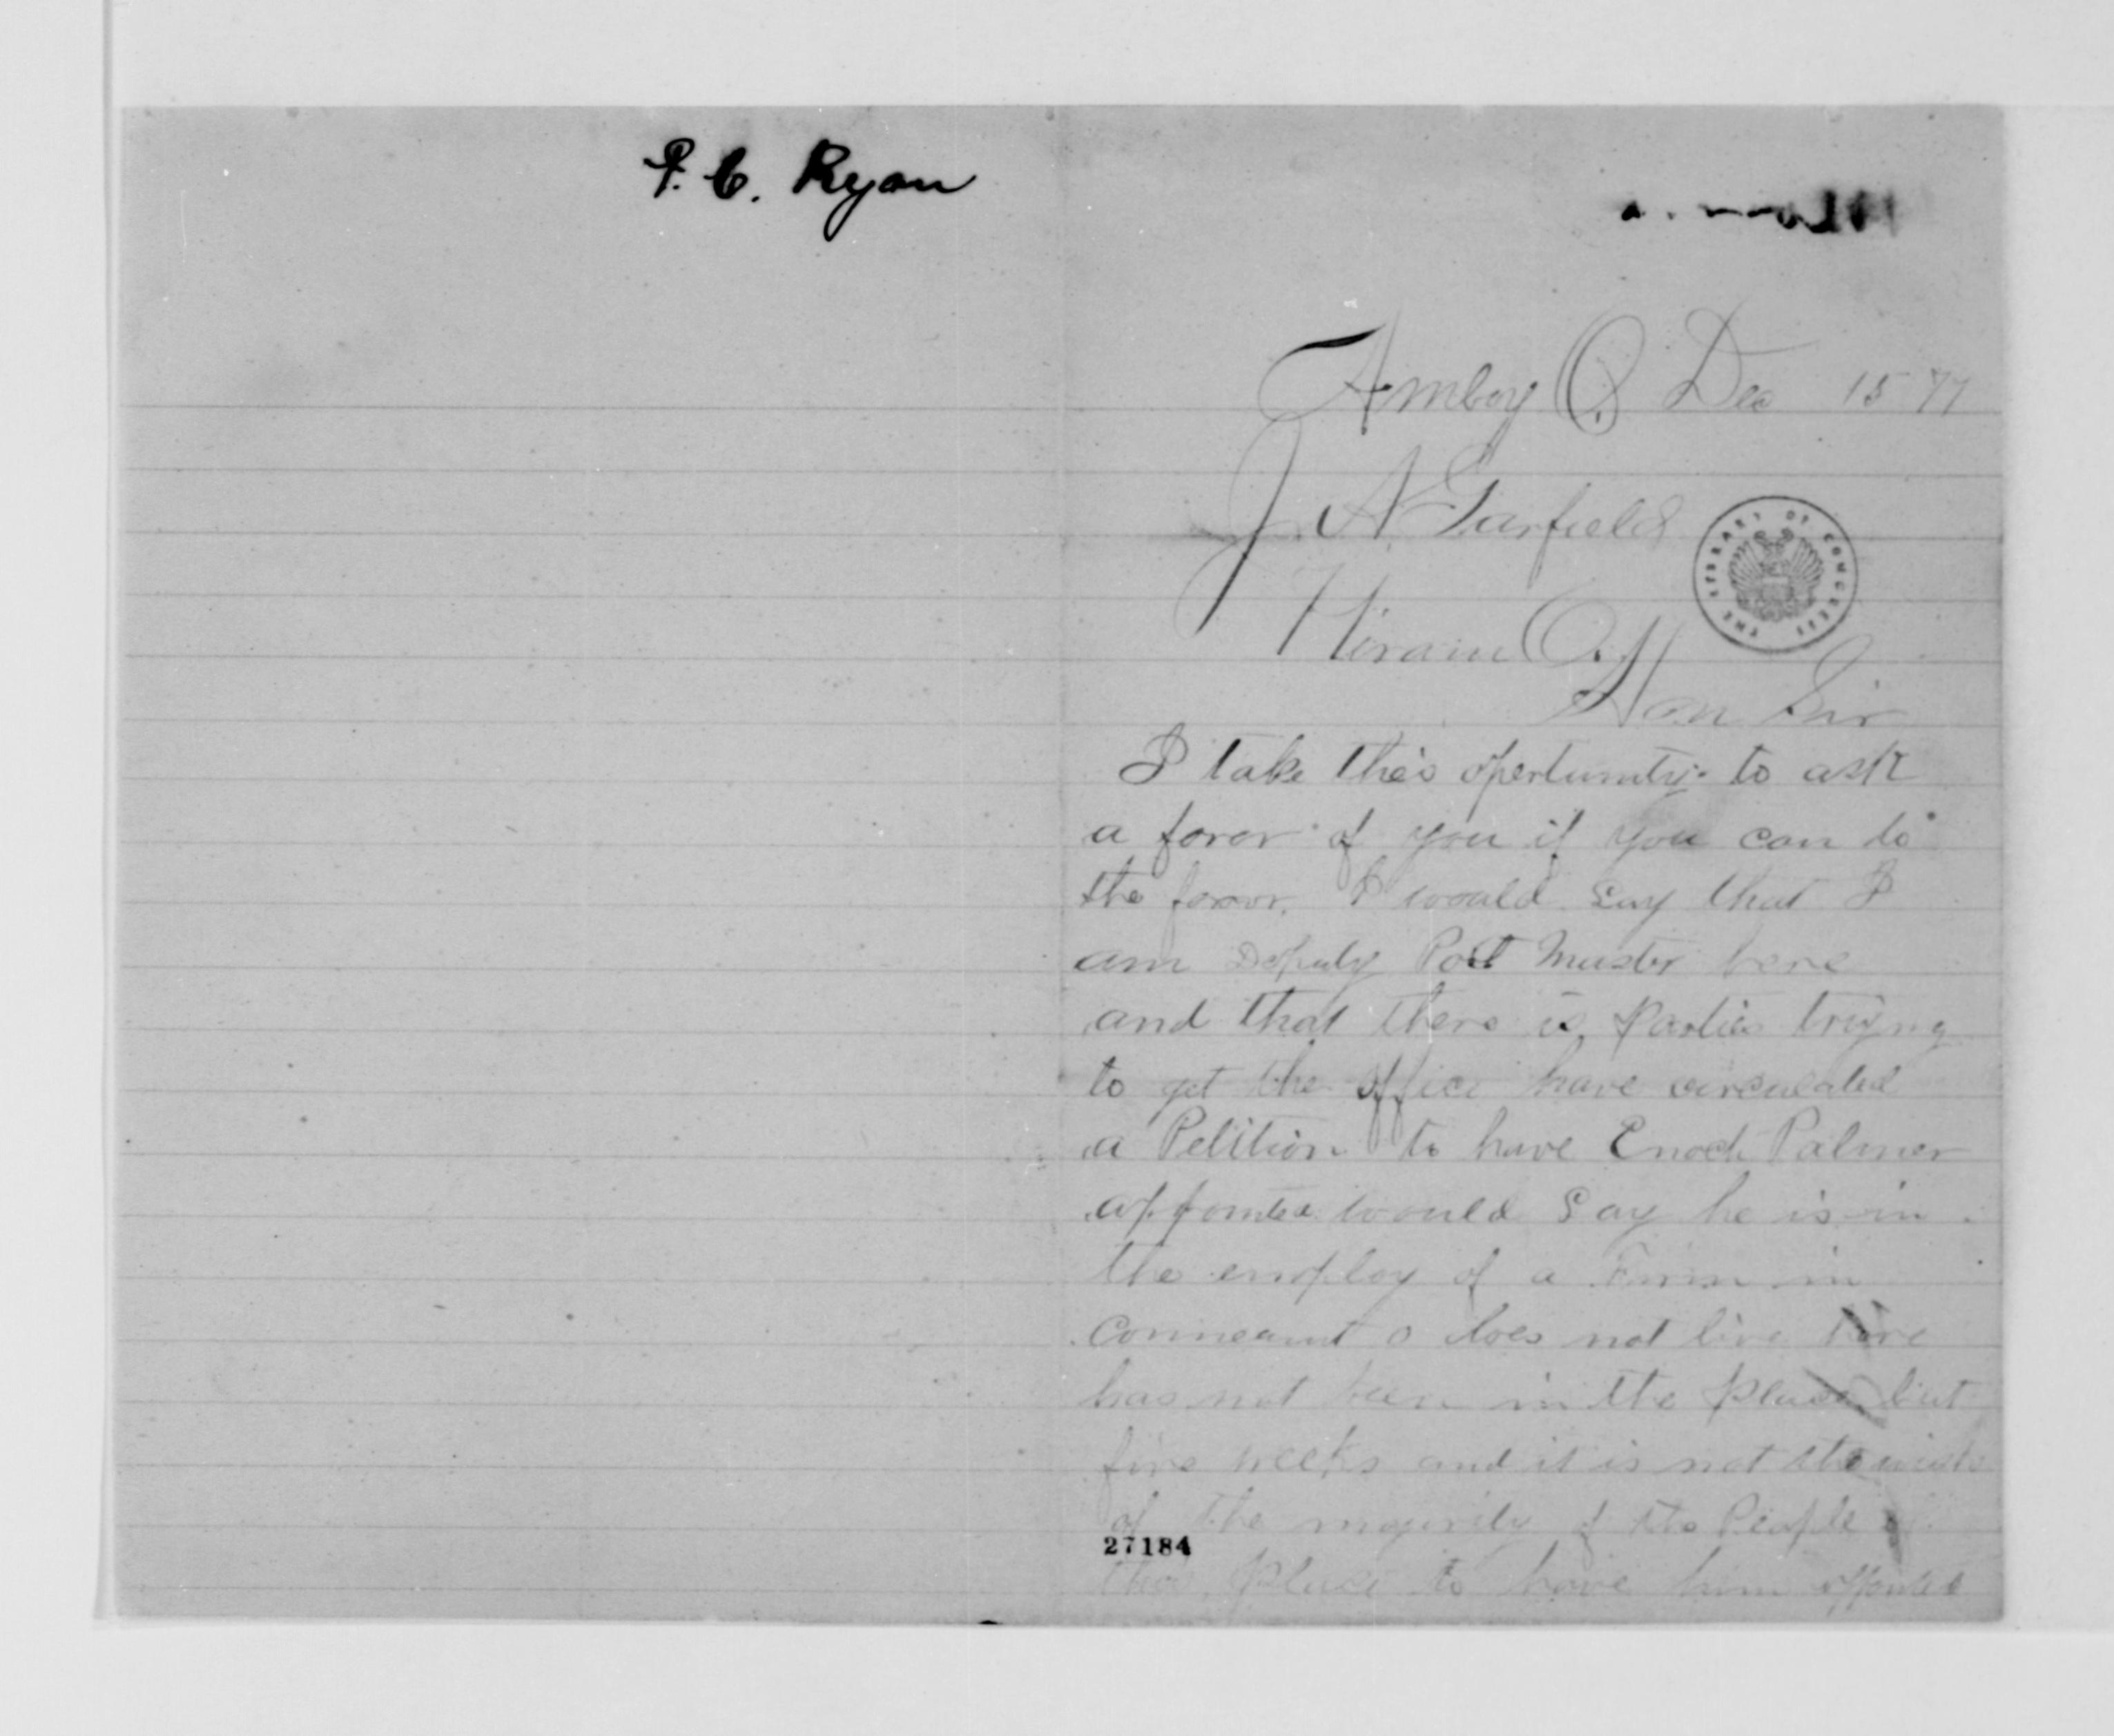 P. C. Ryan
Amboy O. Dec 15 77
J A Garfield
THE LIBRARY OF CONGRESS
Hiram O.
Hon Sir
I take this opertunity to ask
a favor of you if you can do
the favor. I would say that I
am Deputy Post Master here
and that there is Parties trying
to get the office have circulated
a Petition to have Enoch Palmer
appointed would Say he is in
the employ of a Firm in
Conneaut O does not live here
has not been in the place but
five weeks and it is not the wish
of the majority of the People of
27184
this place to have him appointed